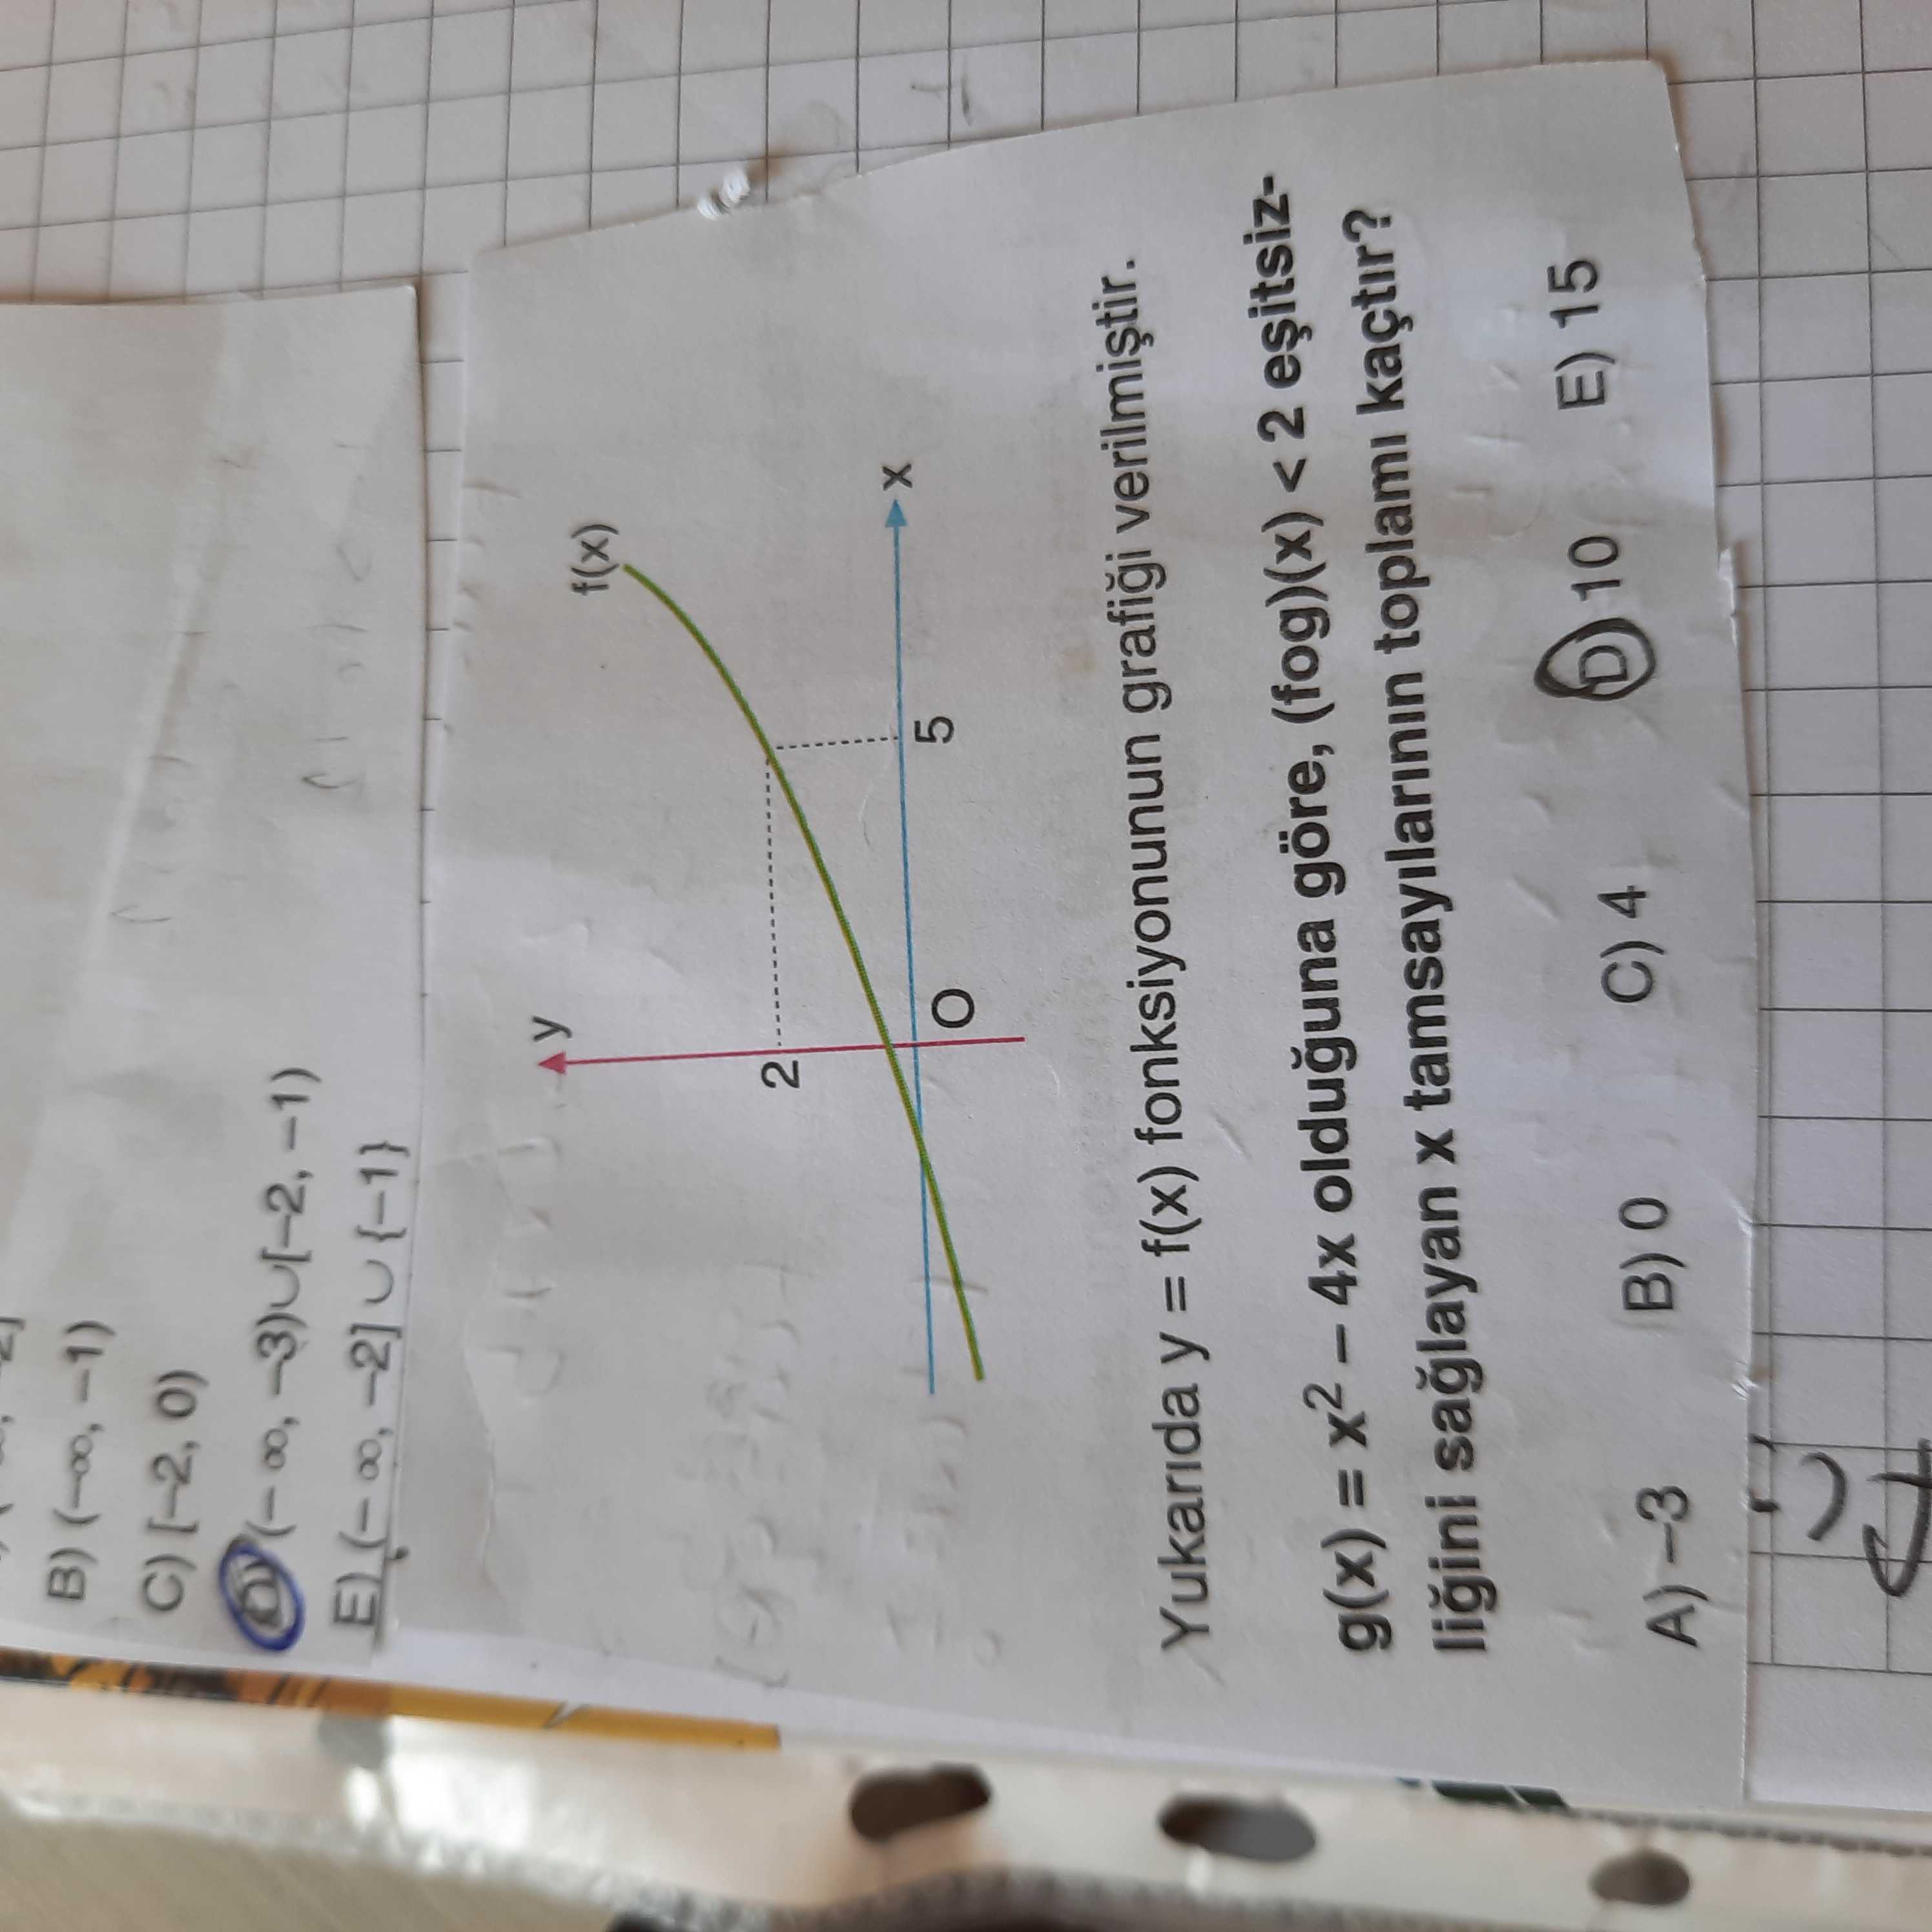 B) (–∞, –1)
C) [–2, 0)
D) (– ∞, –3)∪[–2, –1)
E) (– ∞, –2] ∪ {–1}
y
f(x)
2
x
O
5
Yukarıda y = f(x) fonksiyonunun grafiği verilmiştir.
g(x) = x² – 4x olduğuna göre, (fog)(x) < 2 eşitsiz-
liğini sağlayan x tamsayılarının toplamı kaçtır?
A) –3 B) 0 C) 4 D) 10 E) 15